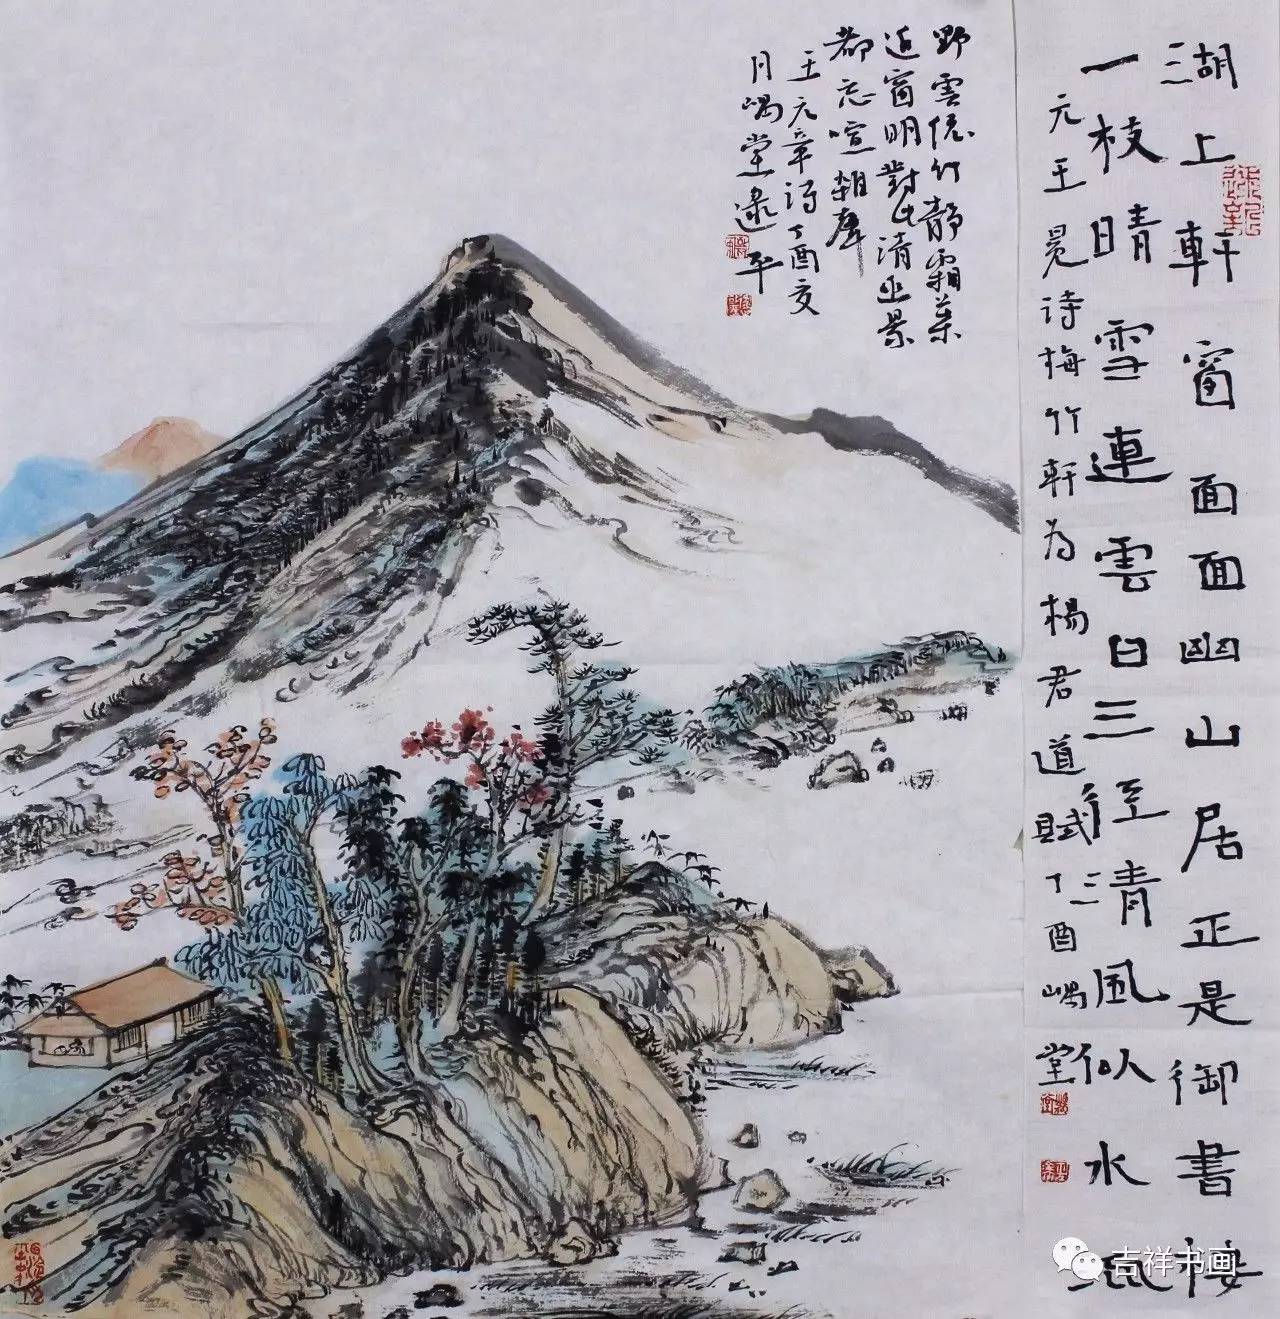 湖上軒窗面面幽山居正是御書樓
一枝晴雪連雲白三徑清風似水流
元王冕诗梅竹軒为楊君道賦丁酉嵎堂
野雲依竹靜霜葉
近窗明對此清幽景
都忘喧雜聲
王元章詩丁酉亥
月嵎堂逯平
吉祥书画